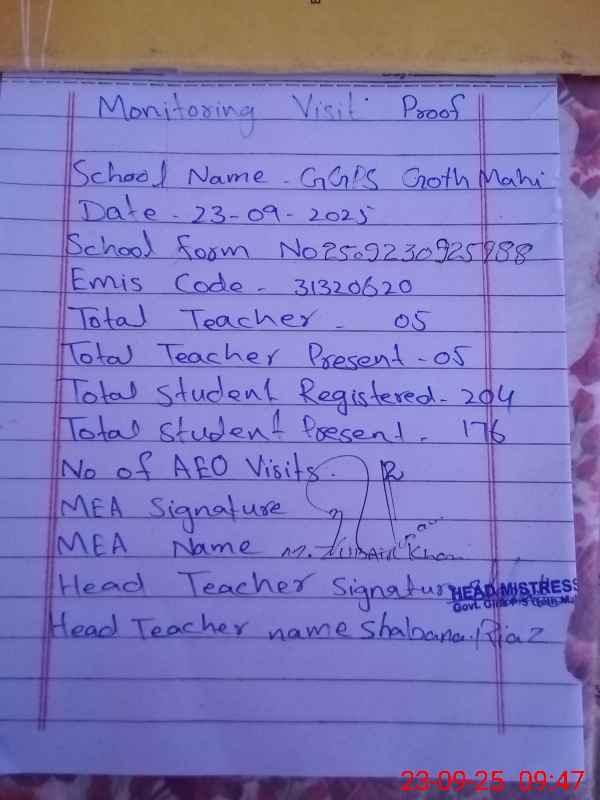 Monitoring Visit Proof
School Name - GGPS Goth Mahi
Date - 23-09-2025
School form No 2509230925988
Emis Code - 31320620
Total Teacher - 05
Total Teacher Present - 05
Total Student Registered - 204
Total Student Present - 176
No of AEO Visits -
MEA Signature
MEA Name M. Zubair Khan
Head Teacher Signature
HEAD MISTRESS
Govt.
Head Teacher name Shabana Riaz
23-09-25 09:47